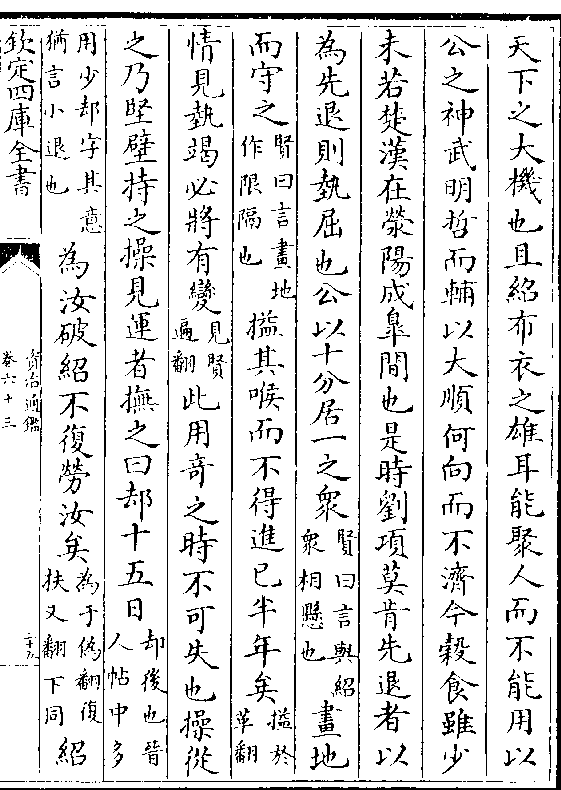 天下之大機也且紹布衣之雄耳能聚人而不能用以
公之神武明哲而輔以大順何向而不濟今穀食雖少
未若楚漢在滎陽成臯間也是時劉項莫肯先退者以
為先退則埶屈也公以十分居一之衆賢曰言與紹衆相懸也畫地
而守之賢曰言畫地作限隔也搤其喉而不得進已半年矣搤於革翻
情見埶竭必將有變見賢遍翻此用竒之時不可失也操從
之乃堅壁持之操見運者撫之曰却十五日却後也晉人帖中多
用少却字其意猶言小退也為汝破紹不復勞汝矣為于偽翻復扶又翻下同紹
欽定四庫全書
資治通鑑
卷六十三